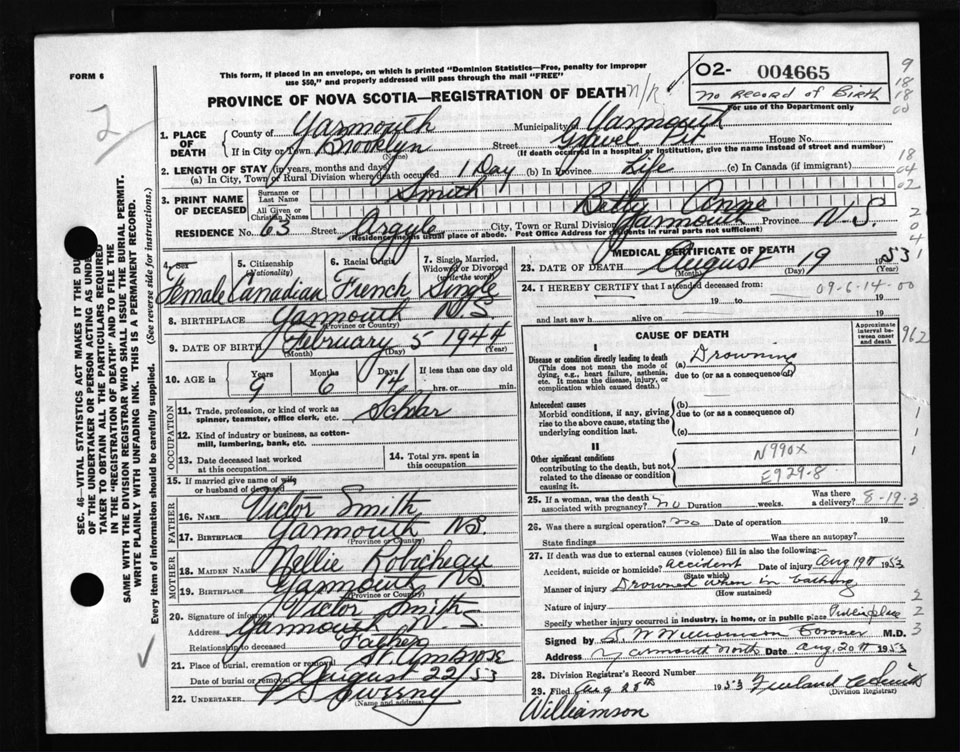 FORM 6
This form, if placed in an envelope, on which is printed "Dominion Statistics—Free, penalty for improper
use $50," and properly addressed will pass through the mail "FREE"
PROVINCE OF NOVA SCOTIA—REGISTRATION OF DEATH n/r
O2- 004665
No RECORD of BIRTH
For use of the Department only
9
18
18
00
2
1. PLACE OF DEATH
County of Yarmouth Municipality Yarmouth
If in City or Town Brooklyn Street Gravel Pit House No.
(Name) (If death occurred in a hospital or institution, give the name instead of street and number)
2. LENGTH OF STAY (in years, months and days)
(a) In City, Town or Rural Division where death occurred 1 Day (b) In Province Life (c) In Canada (if immigrant)
18
04
02
3. PRINT NAME OF DECEASED
Surname or Last Name Smith
All Given or Christian Names Betty Anne
RESIDENCE No. 63 Street Argyle City, Town or Rural Division Yarmouth Province N.S.
(Residence means usual place of abode. Post Office Address for residents in rural parts not sufficient)
2
0
4
4. Sex Female
5. Citizenship (Nationality) Canadian
6. Racial Origin French
7. Single, Married, Widowed or Divorced (write the word) Single
8. BIRTHPLACE Yarmouth N.S.
(Province or Country)
9. DATE OF BIRTH February 5 1944
(Month) (Day) (Year)
10. AGE in Years 9 Months 6 Days 14 If less than one day old
hrs. or min.
OCCUPATION
11. Trade, profession, or kind of work as spinner, teamster, office clerk, etc.
12. Kind of industry or business, as cotton-mill, lumbering, bank, etc.
13. Date deceased last worked at this occupation
14. Total yrs. spent in this occupation
15. If married give name of wife or husband of deceased
FATHER
16. Name Victor Smith
17. Birthplace Yarmouth N.S.
(Province or Country)
MOTHER
18. Maiden Name Nellie Robicheau
19. Birthplace Yarmouth N.S.
(Province or Country)
20. Signature of informant Victor Smith
Address Yarmouth N S
Relationship to deceased Father
21. Place of burial, cremation or removal St. Ambrose
Date of burial or removal August 22/53
22. UNDERTAKER Sweeny
(Name and address)
MEDICAL CERTIFICATE OF DEATH
23. DATE OF DEATH August 19 1953
(Month) (Day) (Year)
1
24. I HEREBY CERTIFY that I attended deceased from:
09-6-14-00
19 to 19
and last saw h alive on 19
CAUSE OF DEATH
Approximate interval between onset and death
962
I
Disease or condition directly leading to death
(This does not mean the mode of dying, e.g., heart failure, asthenia, etc. It means the disease, injury, or complication which caused death.)
(a) Drowning
due to (or as consequence of)
Antecedent causes
Morbid conditions, if any, giving rise to the above cause, stating the underlying condition last.
(b)
due to (or as a consequence of)
(c)
1
1
1
II
Other significant conditions
contributing to the death, but not related to the disease or condition causing it.
N990X
E929-8
25. If a woman, was the death associated with pregnancy? no Duration weeks. Was there a delivery? 8-19-3
26. Was there a surgical operation? no Date of operation 19
State findings Was there an autopsy?
27. If death was due to external causes (violence) fill in also the following:—
Accident, suicide or homicide? accident Date of injury Aug 19th 1953
(State which)
Manner of injury Drowned when in bathing
(How sustained)
Nature of injury
Specify whether injury occurred in industry, in home, or in public place Public place
2
2
3
Signed by S. W. Williamson Coroner M.D.
Address Yarmouth North Date Aug. 20th 1953
28. Division Registrar's Record Number
29. Filed Aug 1953
(Division Registrar)
Williamson
SEC. 46—VITAL STATISTICS ACT MAKES IT THE DUTY
OF THE UNDERTAKER OR PERSON ACTING AS UNDERTAKER
TO OBTAIN ALL THE PARTICULARS REQUIRED
IN THE "REGISTRATION OF DEATH" AND TO FILE THE
SAME WITH THE DIVISION REGISTRAR WHO SHALL ISSUE THE BURIAL PERMIT.
WRITE PLAINLY WITH UNFADING INK. THIS IS A PERMANENT RECORD.
Every item of information should be carefully supplied. (See reverse side for instructions.)